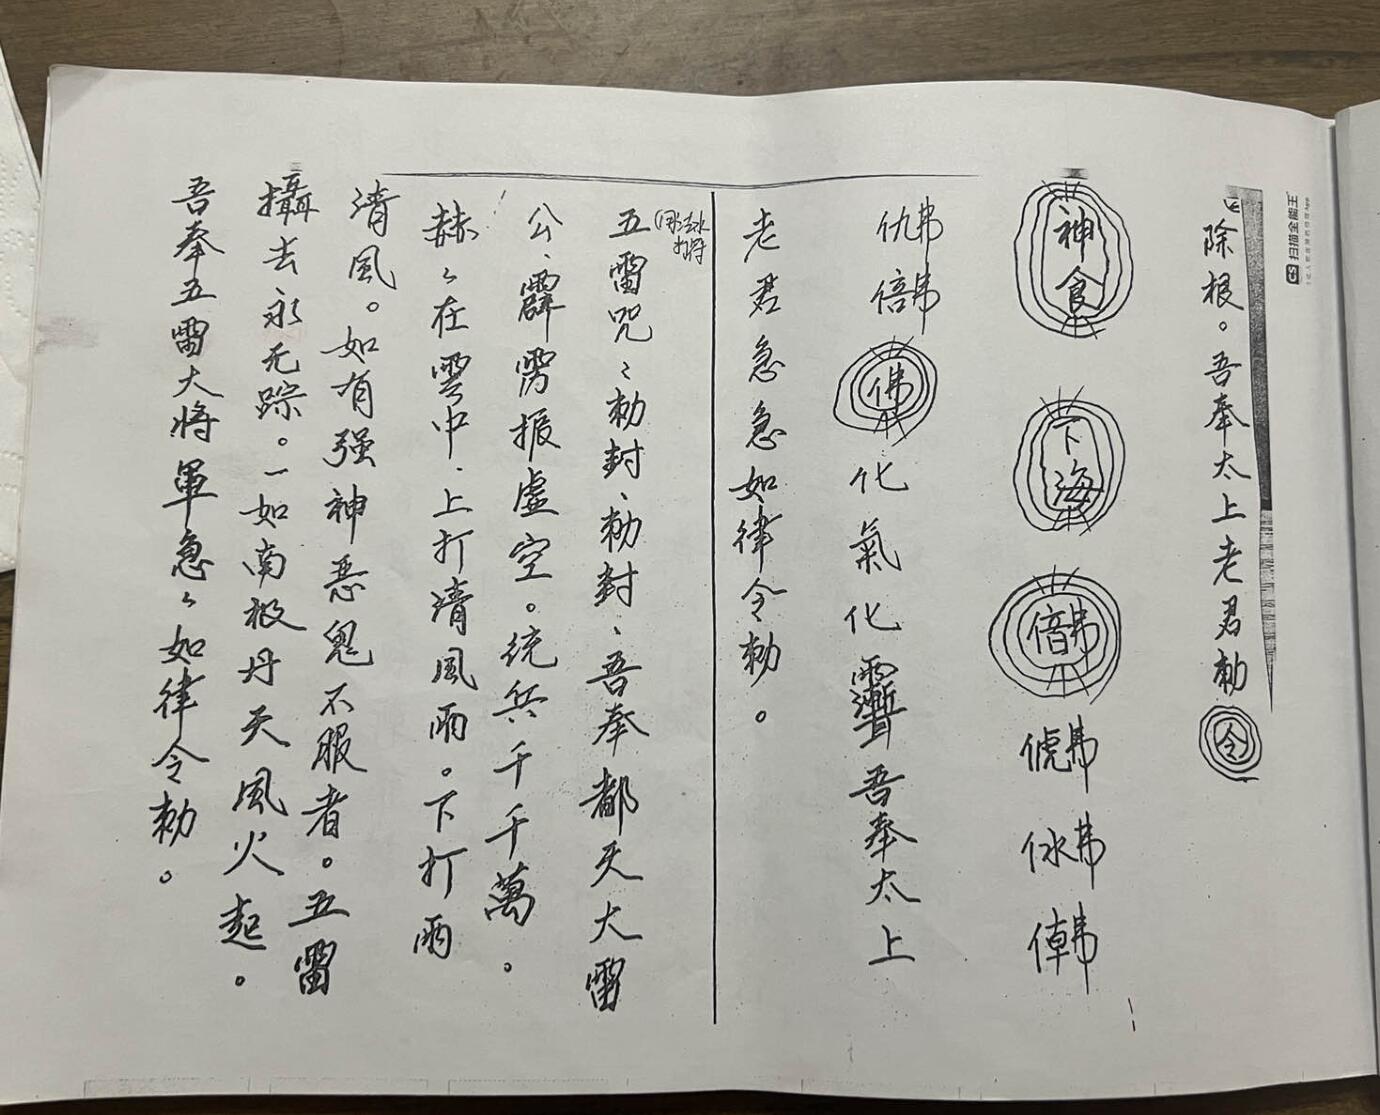 除根。吾奉太上老君勅令
神食
下海
化氣化 吾奉太上
老君急急如律令勅。
五雷咒：勅封、勅封、吾奉都天大雷
公、霹雳振虚空。统兵千千萬。
赫々在雲中、上打清風雨。下打雨
清風。如有强神恶鬼不服者。五雷
攝去永无踪。一如南极丹天風火起。
吾奉五雷大将軍急々如律令勅。
CS 扫描全能王